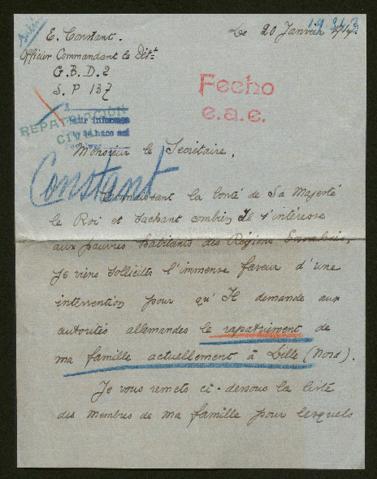 E. Constant. Le 20 Janvier
Officier Commandant le Dét.
G.B.D.2
S.P 137
Fecho
e.a.e.
REPATRIACION
CIVIL
Monsieur le Secrétaire,
Constant
Connaissant la bonté de Sa Majesté
le Roi et sachant combien Il s'intéresse
aux pauvres habitants des Régions Envahies,
je viens solliciter l'immense faveur d'une
intervention pour qu'Il demande aux
autorités allemandes le rapatriement de
ma famille actuellement à Lille (Nord).
Je vous remets ci-dessous la liste
des membres de ma famille pour lesquels